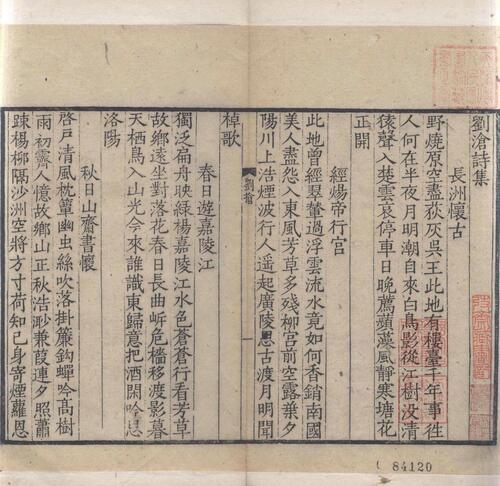 劉滄詩集
長洲懷古
野燒原空盡荻灰吳王此地有樓臺千年事往
人何在半夜月明潮自來白鳥影從江樹没清
猨聲入楚雲哀停車日晚薦蘋藻風靜寒塘花
正開
經煬帝行宮
此地曾經翠輦過浮雲流水竟如何香銷南國
美人盡怨入東風芳草多殘柳宮前空露葉夕
陽川上浩煙波行人遥起廣陵思古渡月明聞
劉滄
一
棹歌
春日遊嘉陵江
獨泛扁舟映綠楊嘉陵江水色蒼蒼行看芳草
故鄉遠坐對落花春日長曲岓危檣移渡影暮
天栖鳥入山光今來誰識東歸意把酒閑吟思
洛陽
秋日山齋書懷
啓戶清風枕簟幽虫絲吹落掛簾鈎蟬吟高樹
雨初霽人憶故鄉山正秋浩渺蒹葭連夕照蕭
踈楊柳隔沙洲空將方寸荷知己身寄煙蘿恩
84120